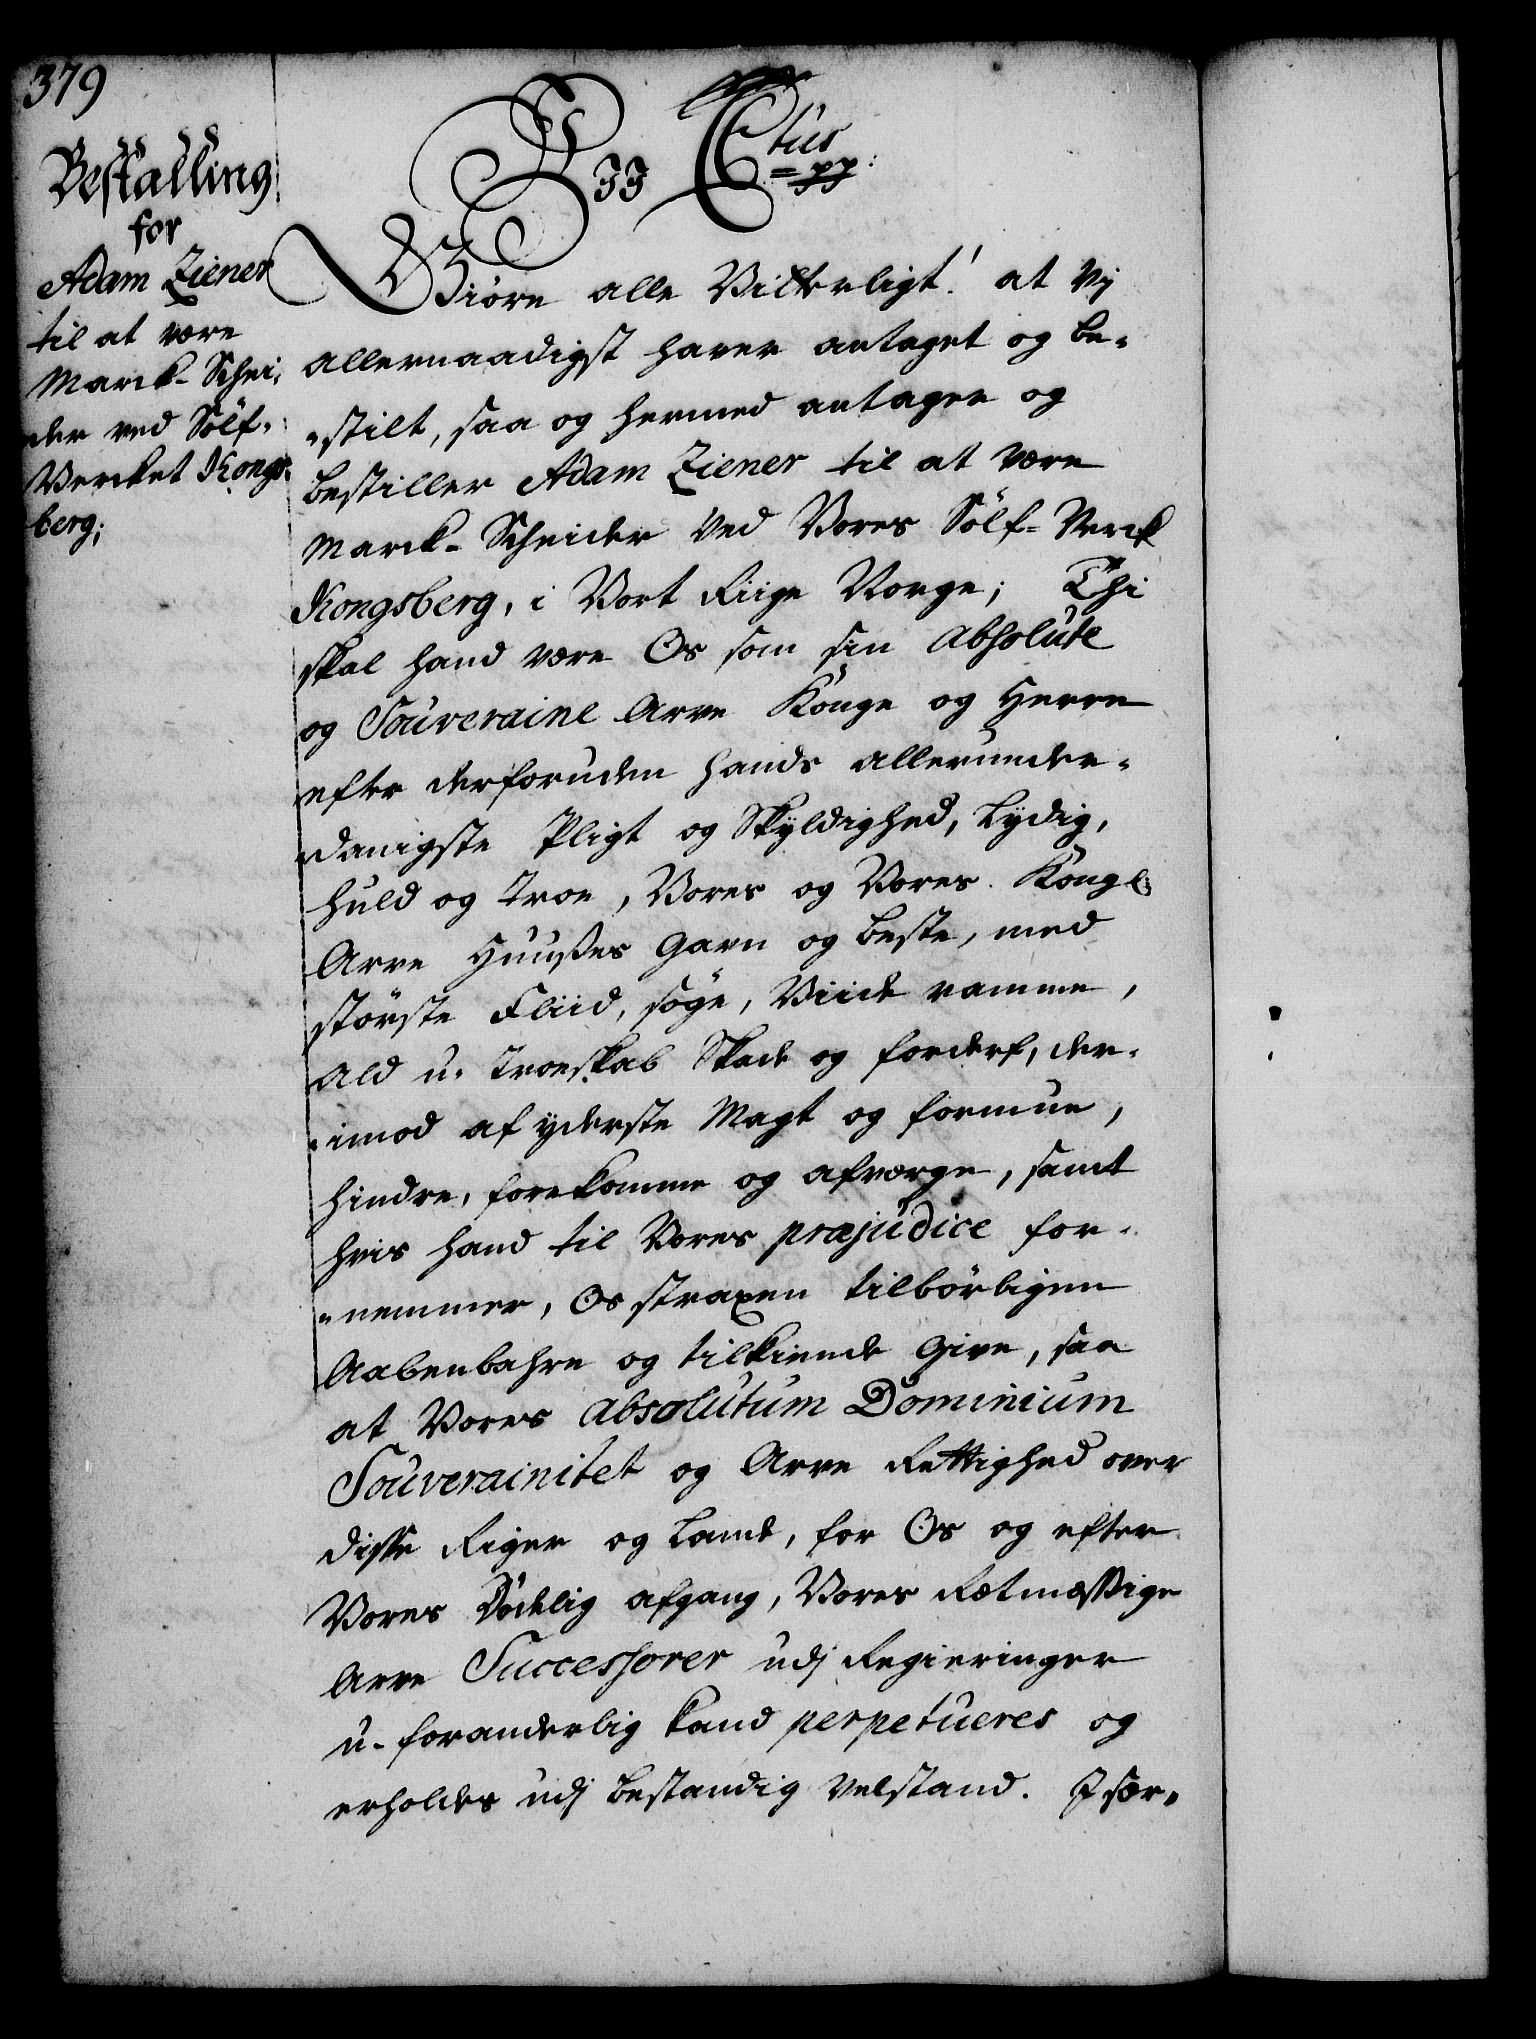 379
Bestalling
for
Adam Ziener
til at være
Marck-Schei,
der ved Sölf-
Vercket Kongs-
berg;
Vii Ctus
=pp:
Giøre alle Vitterligt! at Vj
allernaadigst haver antaget og be-
-stilt, saa og hermed antager og
bestiller Adam Ziener til at være
Marck-Scheider Ved Vores Sölf-Verck
Kongsberg, i Vort Riige Norge; Thi
skal hand være Os som sin absolute
og Souveraine Arve Konge og Herre
efter derforuden hands allerunder-
danigste Pligt og Skyldighed, Lydig,
huld og Troe, Vores og Vores Kongl:
Arve Huußes Gavn og beste, med
störste Fliid, söge, Viide ramme,
Ald u-Troeskab Skade og forderf, der-
-imod af yderste Magt og formue,
hindre, forekomme og afværge, samt
hvis hand til Vores præjudice for-
-nemmer, Os straxen tilbörligen
Aabenbahre og tilkiende give, saa
at Vores absolutum Dominium
Souverainitet og Arve Rettighed over
disse Riger og Lande, for Os og efter
Vores Dödelig afgang, Vores Rætmæssige
Arve Successorer udj Regieringer
u-foranderlig kand perpetueres og
erholdes udj bestandig Velstand. Især-